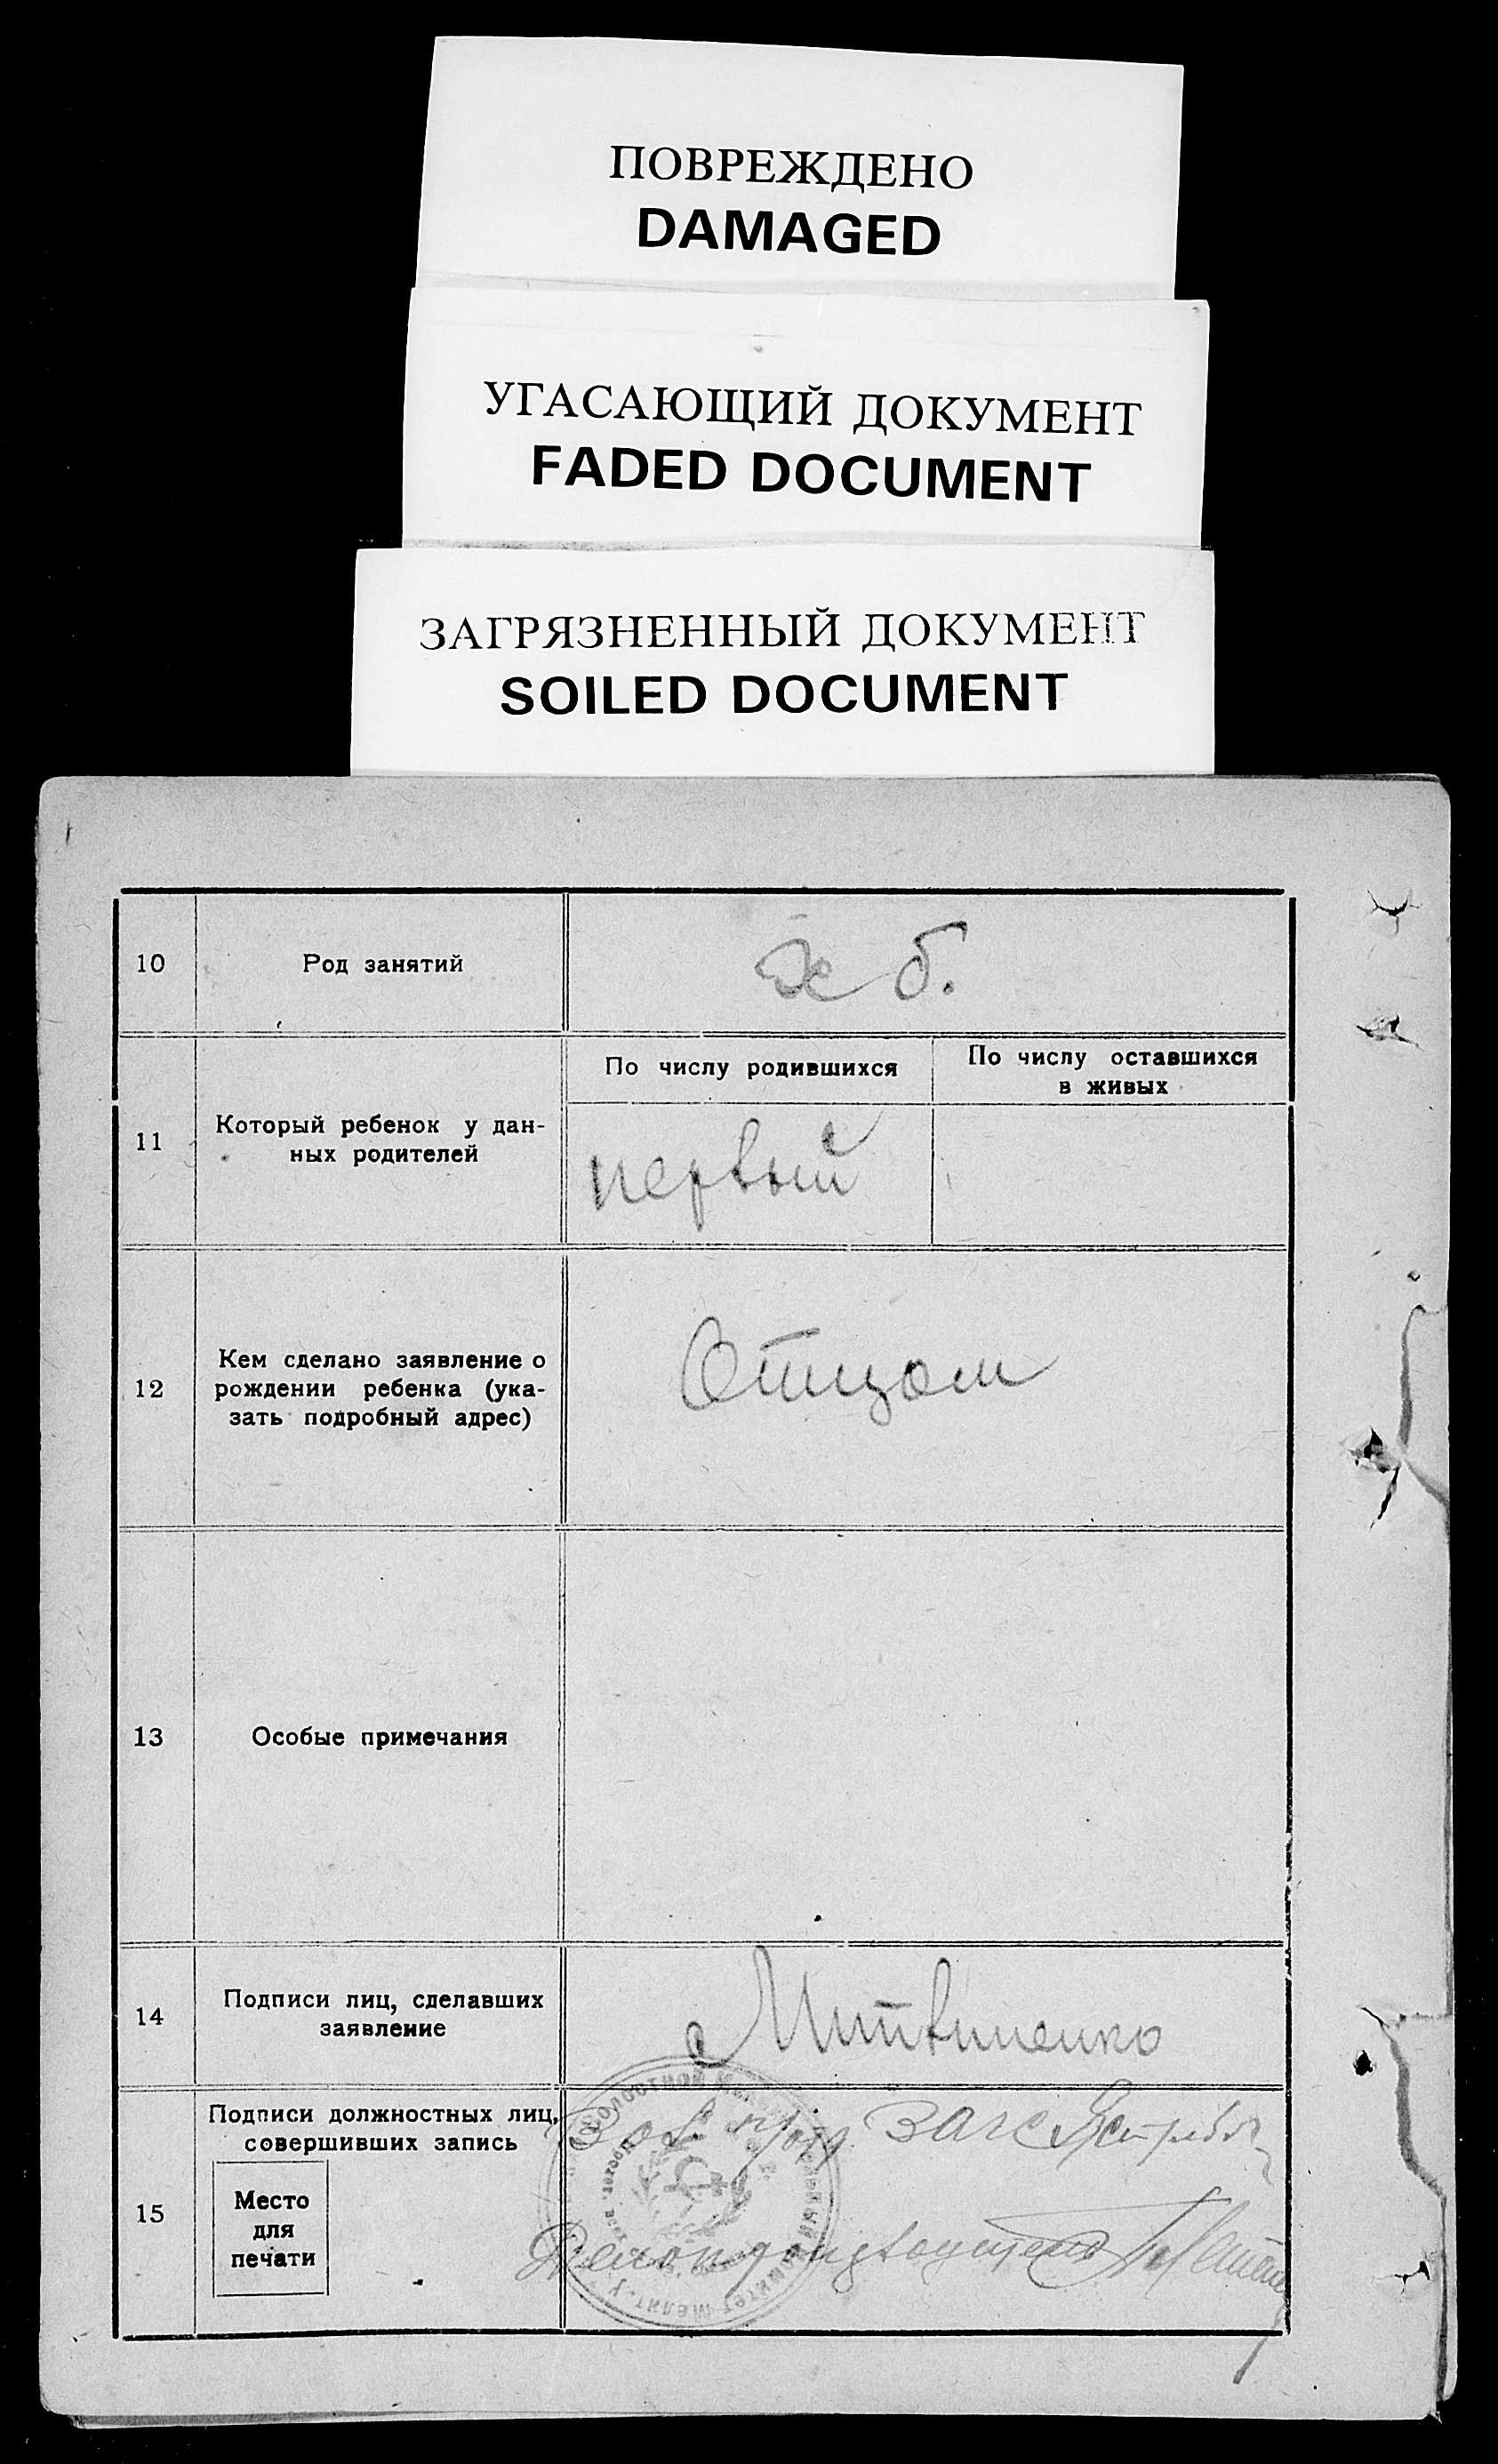 ПОВРЕЖДЕНО
DAMAGED
УГАСАЮЩИЙ ДОКУМЕНТ
FADED DOCUMENT
ЗАГРЯЗНЕННЫЙ ДОКУМЕНТ
SOILED DOCUMENT
10
Род занятий
х б.
11
Который ребенок у дан-
ных родителей
По числу родившихся
По числу оставшихся
в живых
первый
12
Кем сделано заявление о
рождении ребенка (ука-
зать подробный адрес)
Отцом
13
Особые примечания
14
Подписи лиц, сделавших
заявление
Литвиненко
15
Подписи должностных лиц,
совершивших запись
Место
для
печати
Зав. ЗАГС
Делопроизводитель